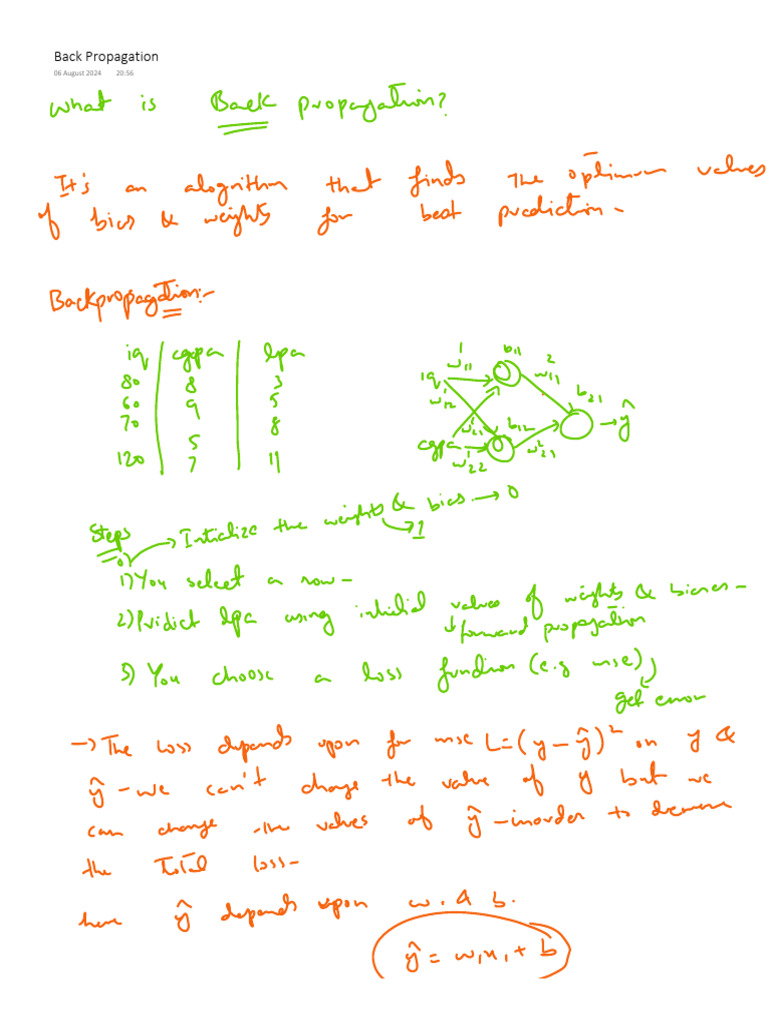 Back Propagation
06 August 2024 20:56
What is Back propagation?
It's an alogrithm that finds the optimum values
of bias & weights for best prediction.
Backpropagation:-
iq cgpa lpa
80 8 3
60 9 5
70 5 8
120 7 11
iq cgpa
w¹11 w¹12 w¹21 w¹22
b11 b12
w²11 w²21
b21 → ŷ
Steps
0) → Intialize the weights & bias → 0
→ 1
1) You select a row -
2) Pridict lpa using initial values of weights & biases -
↓ forward propagation
3) You choose a loss function (e.g mse)
get error
→ The loss depends upon for mse L = (y - ŷ)² on y &
ŷ - we can't change the value of y but we
can change the values of ŷ - inorder to decrease
the Total loss -
here ŷ depends upon w. & b.
ŷ = w₁x₁ + b